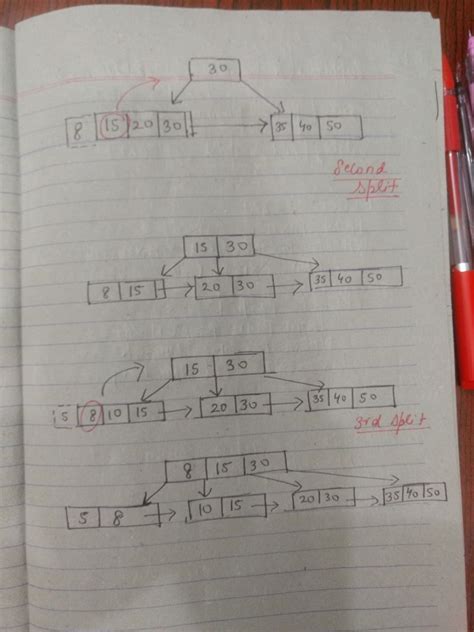 30
8 15 20 30 35 40 50
Second
split
15 30
8 15 20 30 35 40 50
15 30
5 8 10 15 20 30 35 40 50
3rd split
8 15 30
5 8 10 15 20 30 35 40 50